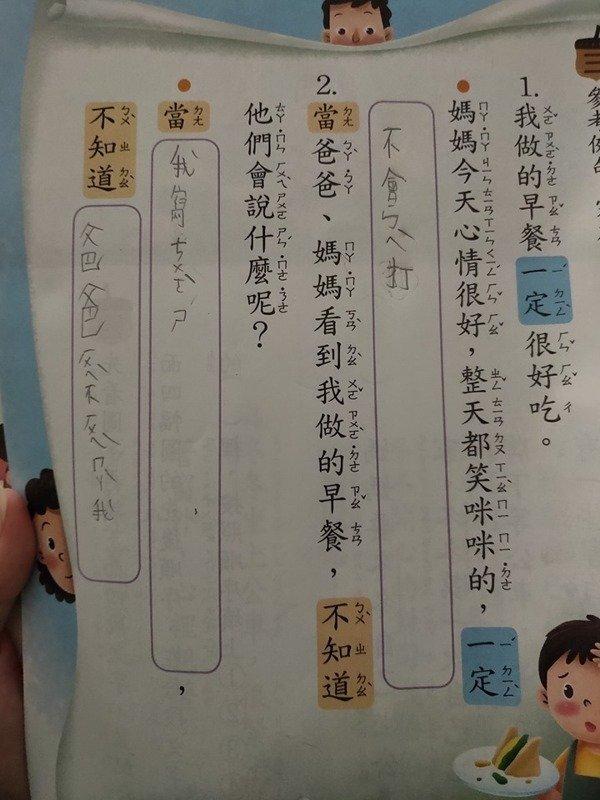 1. 我做的早餐一定很好吃。
媽媽今天心情很好，整天都笑咪咪的，一定
不會ㄅㄟˋ打
2. 當爸爸、媽媽看到我做的早餐，不知道
他們會說什麼呢？
當我寫ㄘㄨㄛˋㄕ，
不知道爸爸ㄏㄨㄟˋ不ㄏㄨㄟˋㄇㄚˋ我